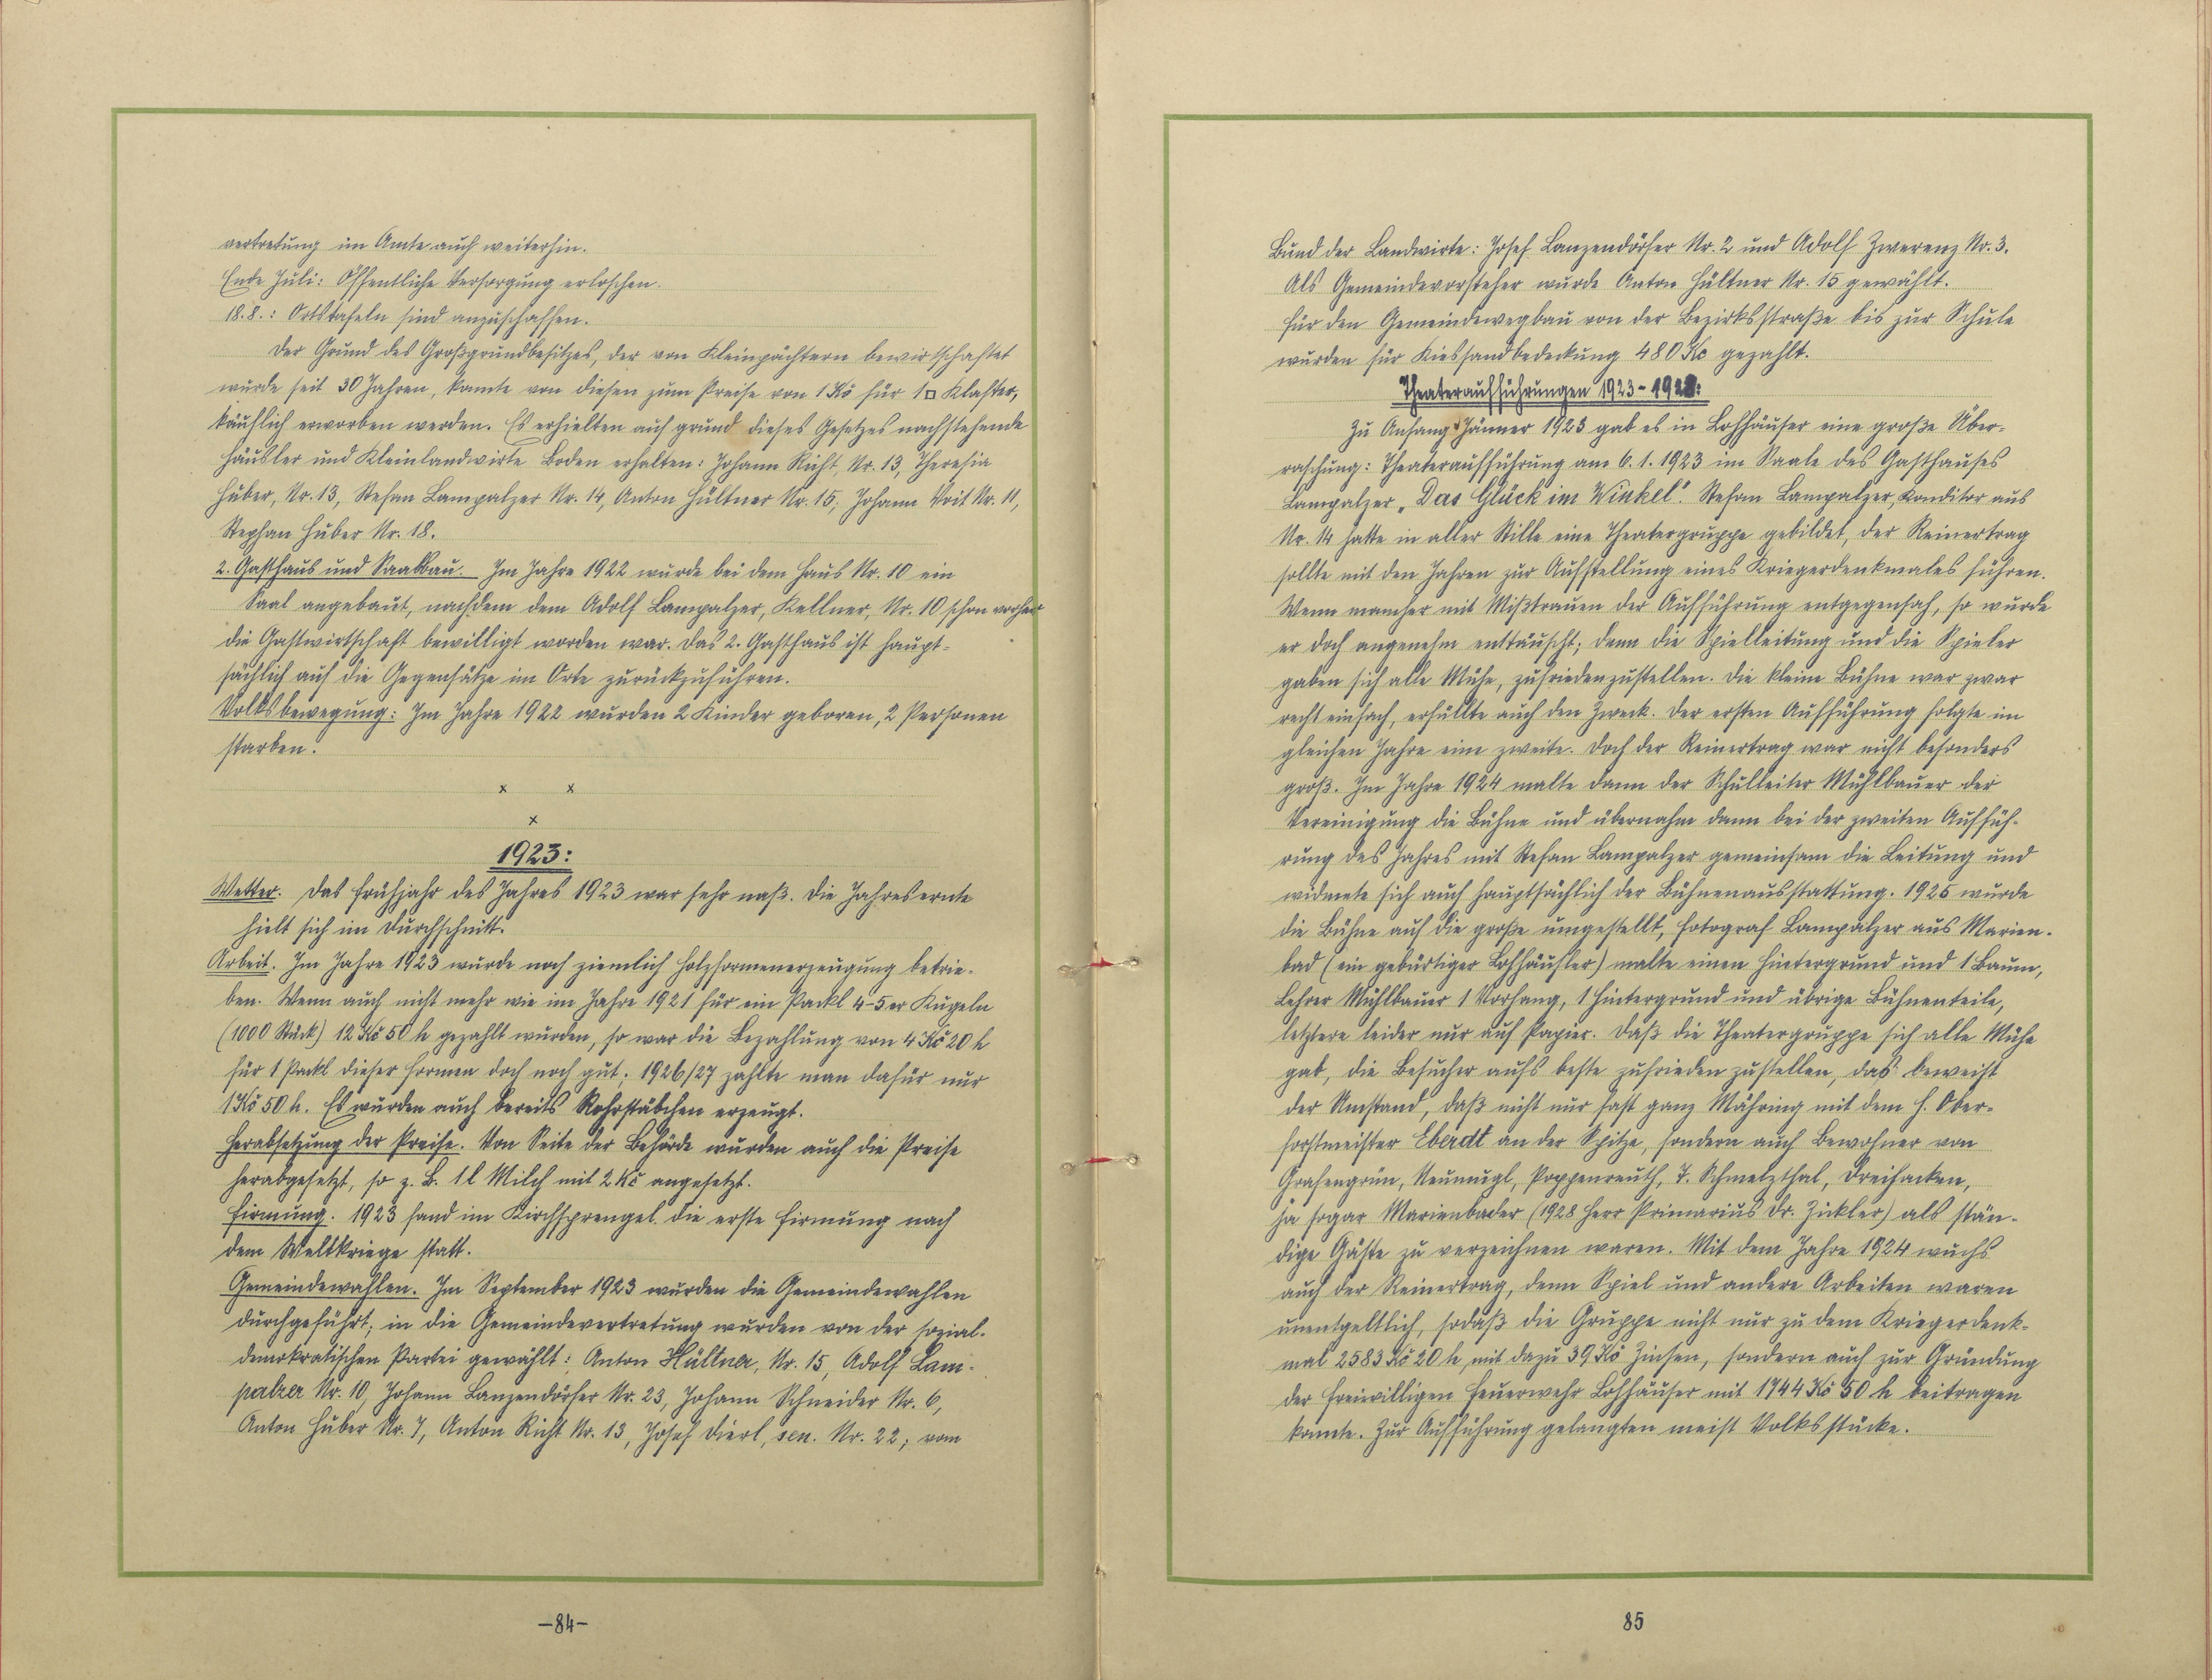 vertretung im Amte auch weiterhin.
Ende Juli: Öffentliche Versorgung erloschen.
18.8.: Ortstafeln sind anzuschaffen.
Der Grund des Großgrundbesitzes, der von Kleinpächtern bewirtschaftet
wurde seit 30 Jahren, konnte von diesen zum Preise von 1 Kč für 1□ Klafter,
käuflich erworben werden. Es erhielten auf grund dieses Gesetzes nachstehende
Häusler und Kleinlandwirte Boden erhalten: Johann Richt, Nr. 13, Theresia
Huber, Nr. 13, Stefan Lampalzer Nr. 14, Anton Hültner Nr. 15, Johann Voit Nr. 11,
Stephan Huber Nr. 18.
2. Gasthaus und Saalbau. Im Jahre 1922 wurde bei dem Haus Nr. 10 ein
Saal angebaut, nachdem dem Adolf Lampalzer, Kellner, Nr. 10 schon vorher
die Gastwirtschaft bewilligt worden war. Das 2. Gasthaus ist haupt-
sächlich auf die Gegensätze im Orte zurückzuführen.
Volksbewegung: Im Jahre 1922 wurden 2 Kinder geboren, 2 Personen
starben.
x x
x
1923:
Wetter. Das Frühjahr des Jahres 1923 war sehr naß. Die Jahresernte
hielt sich im Durchschnitt.
Arbeit. Im Jahre 1923 wurde noch ziemlich Holzformenerzeugung betrie-
ben. Wenn auch nicht mehr wie im Jahre 1921 für ein Packl 4-5er Kugeln
(1000 Stück) 12 Kč 50 h gezahlt wurden, so war die Bezahlung von 4 Kč 20 h
für 1 Packl dieser Formen doch noch gut; 1926/27 zahlte man dafür nur
1 Kč 50 h. Es wurden auch bereits Rohrstäbchen erzeugt.
Herabsetzung der Preise. Von Seite der Behörde wurden auch die Preise
herabgesetzt, so z. B. 1 l Milch mit 2 Kč angesetzt.
Firmung. 1923 fand im Kirchsprengel die erste Firmung nach
dem Weltkriege statt.
Gemeindewahlen. Im September 1923 wurden die Gemeindewahlen
durchgeführt; in die Gemeindevertretung wurden von der sozial-
demokratischen Partei gewählt: Anton Hültner, Nr. 15, Adolf Lam-
palzer Nr. 10, Johann Lanzendörfer Nr. 23, Johann Schneider Nr. 6,
Anton Huber Nr. 7, Anton Richt Nr. 13, Josef Dierl, sen. Nr. 22; vom
-84-
Bund der Landwirte: Josef Lanzendörfer Nr. 2 und Adolf Zwerenz Nr. 3.
Als Gemeindevorsteher wurde Anton Hültner Nr. 15 gewählt.
Für den Gemeindewegbau von der Bezirksstraße bis zur Schule
wurden für Kiessandbedeckung 480 Kč gezahlt.
Theateraufführungen 1923-1928:
Zu Anfang Jänner 1923 gab es in Lohhäuser eine große Über-
raschung: Theateraufführung am 6.1.1923 im Saale des Gasthauses
Lampalzer „Das Glück im Winkel". Stefan Lampalzer, Konditor aus
Nr. 14 hatte in aller Stille eine Theatergruppe gebildet, der Reinertrag
sollte mit den Jahren zur Aufstellung eines Kriegerdenkmales führen.
Wenn mancher mit Mißtrauen der Aufführung entgegensah, so wurde
er doch angenehm enttäuscht; denn die Spielleitung und die Spieler
gaben sich alle Mühe, zufriedenzustellen. Die kleine Bühne war zwar
recht einfach, erfüllte auch den Zweck. Der ersten Aufführung folgte im
gleichen Jahre eine zweite. Doch der Reinertrag war nicht besonders
groß. Im Jahre 1924 malte dann der Schulleiter Mühlbauer der
Vereinigung die Bühne und übernahm dann bei der zweiten Auffüh-
rung des Jahres mit Stefan Lampalzer gemeinsam die Leitung und
widmete sich auch hauptsächlich der Bühnenausstattung. 1925 wurde
die Bühne auf die große umgestellt, Fotograf Lampalzer aus Marien-
bad (ein gebürtiger Lohhäusler) malte einen Hintergrund und 1 Baum,
Lehrer Mühlbauer 1 Vorhang, 1 Hintergrund und übrige Bühnenteile,
letztere leider nur auf Papier. Daß die Theatergruppe sich alle Mühe
gab, die Besucher aufs beste zufrieden zustellen, das beweist
der Umstand, daß nicht nur fast ganz Mähring mit dem H. Ober-
forstmeister Eberdt an der Spitze, sondern auch Bewohner von
Grafengrün, Neumugl, Poppenreuth, T. Schmelzthal, Dreihacken,
ja sogar Marienbader (1928 Herr Primarius Dr. Zickler) als stän-
dige Gäste zu verzeichnen waren. Mit dem Jahre 1924 wuchs
auch der Reinertrag, denn Spiel und andere Arbeiten waren
unentgeltlich, sodaß die Gruppe nicht nur zu dem Kriegerdenk-
mal 2583 Kč 20 h, mit dazu 39 Kč Zinsen, sondern auch zur Gründung
der freiwilligen Feuerwehr Lohhäuser mit 1744 Kč 50 h beitragen
konnte. Zur Aufführung gelangten meist Volksstücke.
85